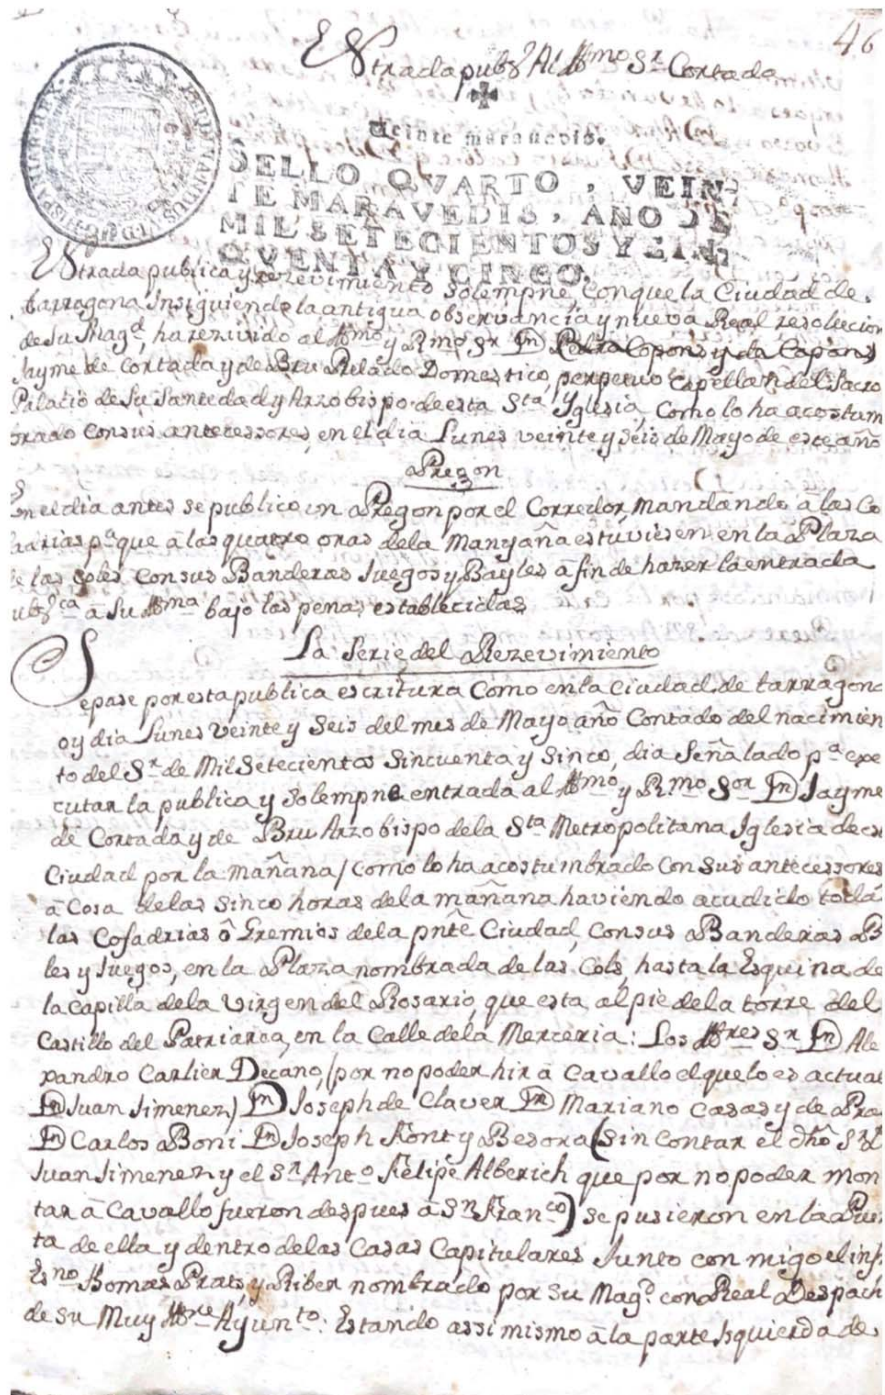 46
EStrada pubᶜᵃ Al Illmo Sr. Cortada
Veinte maravedis.
SELLO QVARTO, VEIN-
TE MARAVEDIS, AÑO DE
MIL SETECIENTOS Y CIN-
QVENTA Y CINCO.
EStrada publica y rezevimiento solempne, con que la Ciudad de
tarragona Insiguiendo la antigua observancia y nueva Real resolucion
de su Magd, ha rezivido al Illmo y Rmo Sr Dn
Jayme de Cortada y de Bru Prelado Domestico, perpetuo Capellan del Sacro
Palacio de Su Santedad y Arzobispo de esta Sta Yglesia, Como lo ha acostum
brado con sus antecessores, en el dia Lunes veinte y Seis de Mayo de este año
Pregon
En el dia antes se publico un Pregon por el Corredor mandando â las Co
fadrias pa que â las quatro oras de la Manyaña estuviesen en la Plaza
de las Coles con sus Banderas Juegos y Bayles â fin de hazer la entrada
pubca â Su Illma bajo las penas establecidas
La Serie del Rezevimiento
Sepase por esta publica escritura Como en la Ciudad de tarragona
oy dia Lunes veinte y Seis del mes de Mayo año Contado del nacimien
to del Sr de Mil Setecientos Sincuenta y Sinco, dia Señalado pa exe
cutar la publica y solempne entrada al Illmo y Rmo Sor Dn Jayme
de Cortada y de Bru Arzobispo de la Sta Metropolitana Iglesia de es
Ciudad por la mañana / como lo ha acostumbrado con sus antecessores
â Cosa de las Sinco horas de la mañana haviendo acudido todas
las Cofadrias ô Gremios de la pnte Ciudad, con sus Banderas B
les y Juegos, en la Plaza nombrada de las Cols, hasta la Esquina de
la Capilla de la Virgen del Rosario, que esta al pie de la torre del
Castillo del Patriarca, en la Calle de la Merceria: Los Illres Sr Dn Ale
xandro Carlier Decano, (por no poder hir â Cavallo el que lo es actual
Dn Juan Jimenez) Dn Joseph de Claver Dn Mariano Casas y de Pra
Dn Carlos Boni Dn Joseph Font y Besora (Sin contar el dho Sr Dn
Juan Jimenez y el Sr Anto Felipe Alberich que por no poder mon
tar â Cavallo fueron despues â Sn Franco) se pusieron en la Puer
ta de ella y dentro de las Casas Capitulares Junto con migo el inf
Esno Thomas Prats y Riber nombrado por su Magd con Real Despach
de su Muy Illre Ayunto: Estando assi mismo â la parte Isquierda de